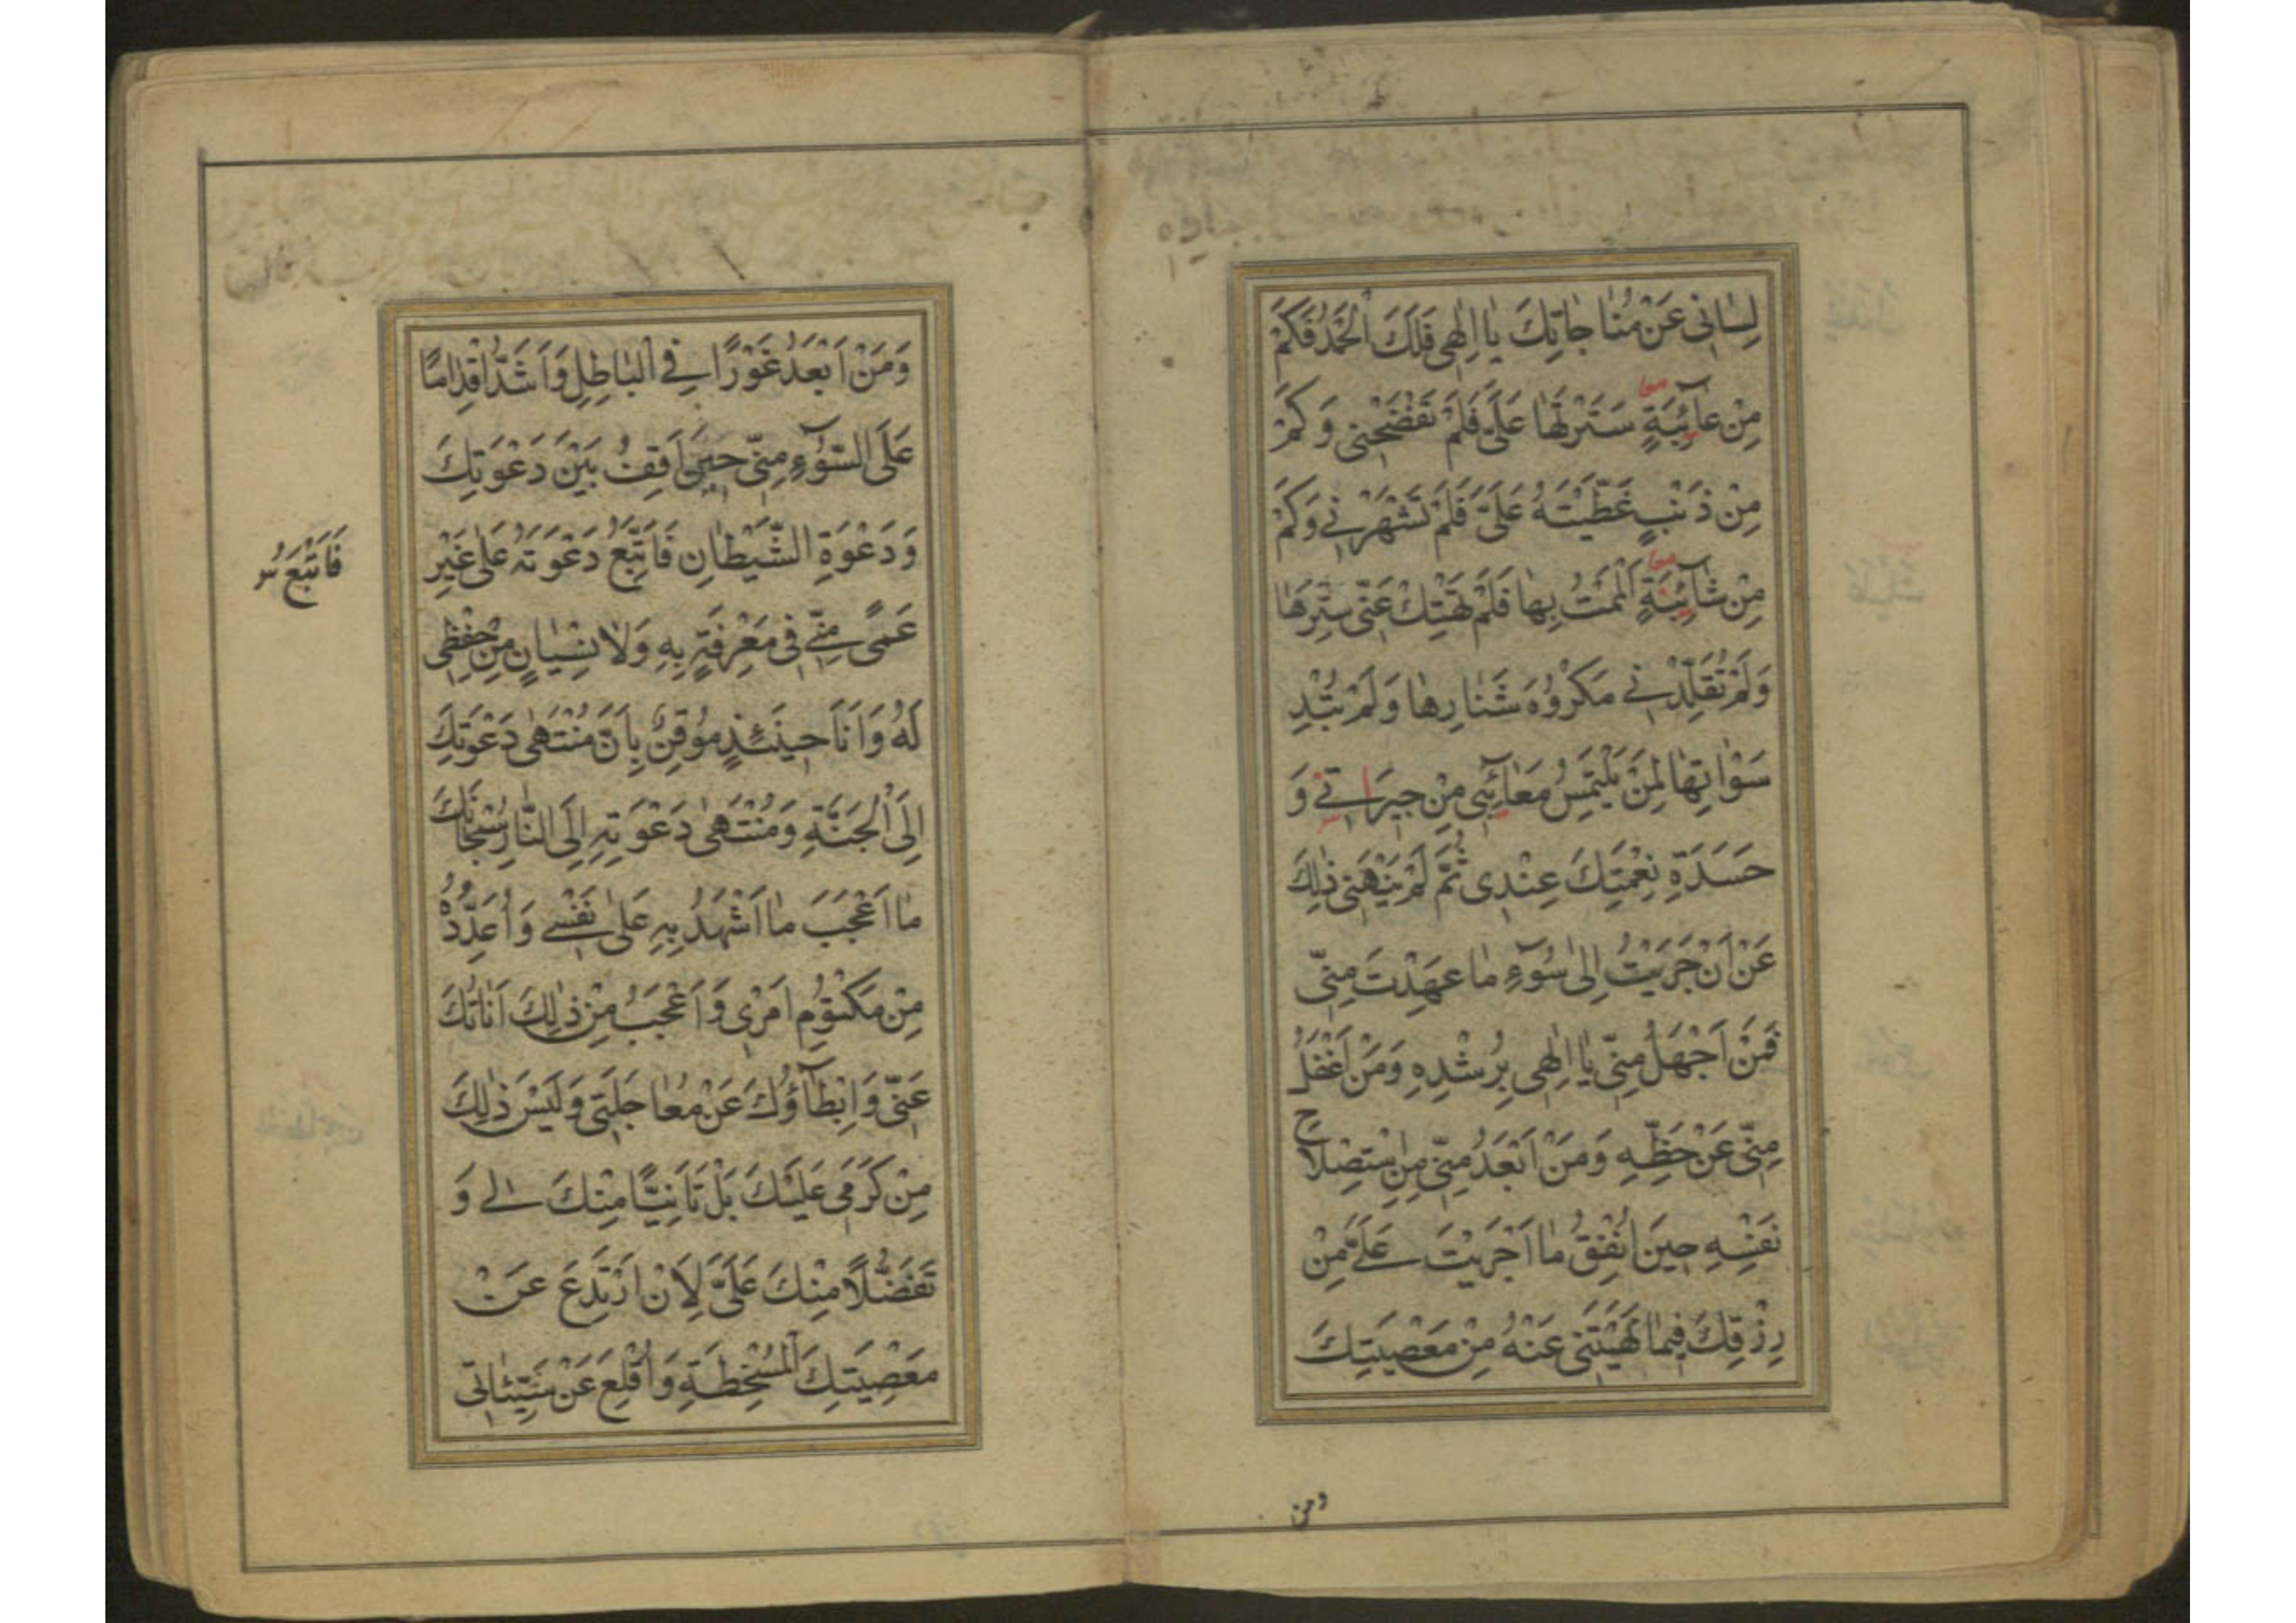 لِسَانِى عَنْ مُنَاجَاتِكَ يَا اِلٰهِى فَلَكَ الْحَمْدُ فَكَمْ
مِنْ عَآئِبَةٍ سَتَرْتَهَا عَلَىَّ فَلَمْ تَفْضَحْنِى وَكَمْ
مِنْ ذَنْبٍ غَطَّيْتَهُ عَلَىَّ فَلَمْ تَشْهَرْنِى وَكَمْ
مِنْ شَآئِبَةٍ اَلْمَمْتُ بِهَا فَلَمْ تَهْتِكْ عَنِّى سِتْرَهَا
وَلَمْ تُقَلِّدْنِى مَكْرُوهَ شَنَارِهَا وَلَمْ تُبْدِ
سَوْاٰتِهَا لِمَنْ يَلْتَمِسُ مَعَآئِبِى مِنْ جِيرَتِى وَ
حَسَدَةِ نِعْمَتِكَ عِنْدِى ثُمَّ لَمْ يَنْهَنِى ذٰلِكَ
عَنْ اَنْ جَرَيْتُ اِلٰى سُوٓءِ مَا عَهِدْتَ مِنِّى
فَمَنْ اَجْهَلُ مِنِّى يَا اِلٰهِى بِرُشْدِهِ وَمَنْ اَغْفَلُ
مِنِّى عَنْ حَظِّهِ وَمَنْ اَبْعَدُ مِنِّى مِنِ اسْتِصْلَاحِ
نَفْسِهِ حِينَ اُنْفِقُ مَا اَجْرَيْتَ عَلَىَّ مِنْ
رِزْقِكَ فِيمَا نَهَيْتَنِى عَنْهُ مِنْ مَعْصِيَتِكَ
ومن
وَمَنْ اَبْعَدُ غَوْرًا فِى الْبَاطِلِ وَاَشَدُّ اِقْدَامًا
عَلَى السُّوٓءِ مِنِّى حِينَ اَقِفُ بَيْنَ دَعْوَتِكَ
وَدَعْوَةِ الشَّيْطَانِ فَاَتَّبِعُ دَعْوَتَهُ عَلٰى غَيْرِ
فَاَتْبَعُ س
عَمًى مِنِّى فِى مَعْرِفَةٍ بِهِ وَلَا نِسْيَانٍ مِنْ حِفْظِى
لَهُ وَاَنَا حِينَئِذٍ مُوقِنٌ بِاَنَّ مُنْتَهٰى دَعْوَتِكَ
اِلَى الْجَنَّةِ وَمُنْتَهٰى دَعْوَتِهِ اِلَى النَّارِ سُبْحَانَكَ
مَا اَعْجَبَ مَا اَشْهَدُ بِهِ عَلٰى نَفْسِى وَاُعَدِّدُهُ
مِنْ مَكْتُومِ اَمْرِى وَاَعْجَبُ مِنْ ذٰلِكَ اَنَاتُكَ
عَنِّى وَاِبْطَآؤُكَ عَنْ مُعَاجَلَتِى وَلَيْسَ ذٰلِكَ
مِنْ كَرَمِى عَلَيْكَ بَلْ تَاَنِّيًا مِنْكَ لِى وَ
تَفَضُّلًا مِنْكَ عَلَىَّ لِاَنْ اَرْتَدِعَ عَنْ
مَعْصِيَتِكَ الْمُسْخِطَةِ وَاُقْلِعَ عَنْ سَيِّئَاتِى